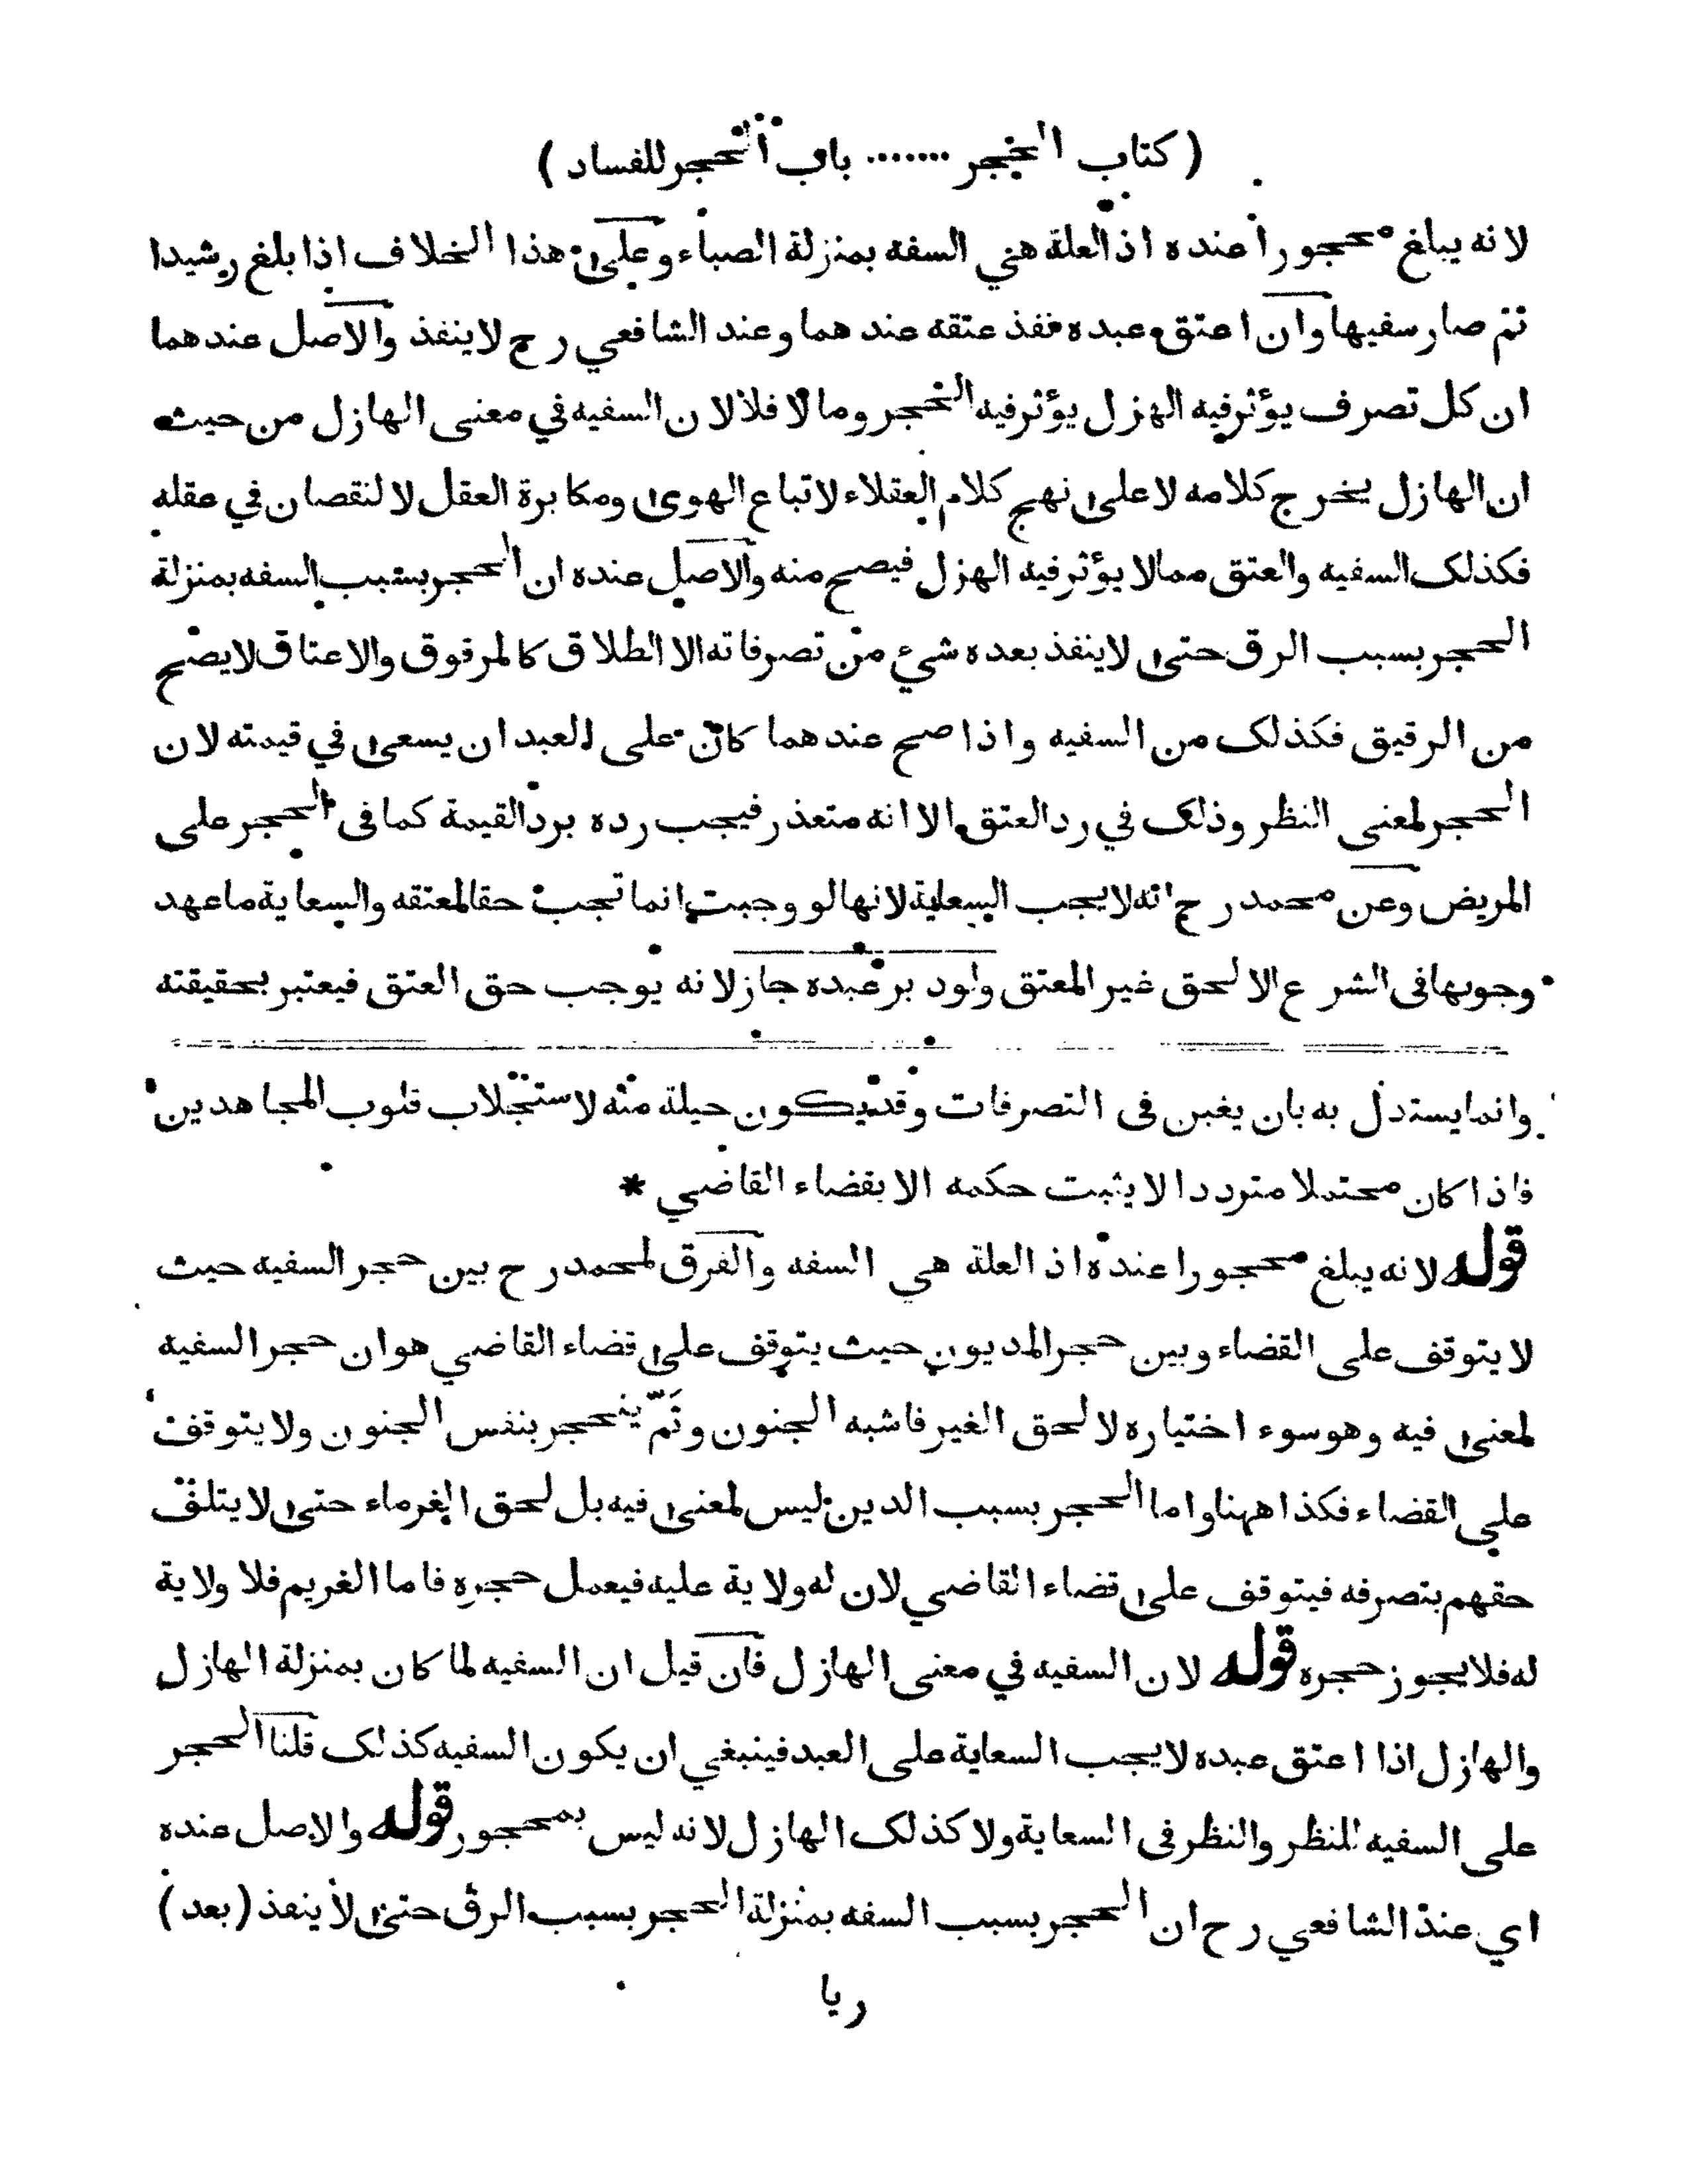 ( كتاب الحجر ....... باب الحجر للفساد )
لانه يبلغ محجورا عنده اذ العلة هي السفه بمنزلة الصباء وعلى هذا الخلاف اذا بلغ رشيدا
ثم صار سفيها وان اعتق عبده نفذ عتقه عندهما وعند الشافعي رح لا ينفذ والاصل عندهما
ان كل تصرف يؤثر فيه الهزل يؤثر فيه الحجر وما لا فلا لان السفيه في معنى الهازل من حيث
ان الهازل يخرج كلامه لا على نهج كلام العقلاء لاتباع الهوى ومكابرة العقل لا لنقصان في عقله
فكذلك السفيه والعتق مما لا يؤثر فيه الهزل فيصح منه والاصل عنده ان الحجر بسبب السفه بمنزلة
الحجر بسبب الرق حتى لا ينفذ بعده شيء من تصرفاته الا الطلاق كالمرقوق والاعتاق لا يصح
من الرقيق فكذلك من السفيه واذا صح عندهما كان على العبد ان يسعى في قيمته لان
الحجر لمعنى النظر وذلك في رد العتق الا انه متعذر فيجب رده برد القيمة كما فى الحجر على
المريض وعن محمد رح انه لا يجب السعاية لانها لو وجبت انما تجب حقا لمعتقه والسعاية ما عهد
وجوبها فى الشرع الا لحق غير المعتق ولو دبر عبده جاز لانه يوجب حق العتق فيعتبر بحقيقته
وانما يستدل به بان يغبن فى التصرفات وقد يكون حيلة منه لاستجلاب قلوب المجاهدين
فاذا كان محتملا مترددا لا يثبت حكمه الا بقضاء القاضي *
قوله لانه يبلغ محجورا عنده اذ العلة هي السفه والفرق لمحمد رح بين حجر السفيه حيث
لا يتوقف على القضاء وبين حجر المديون حيث يتوقف على قضاء القاضي هو ان حجر السفيه
لمعنى فيه وهو سوء اختياره لا لحق الغير فاشبه الجنون وثم ينحجر بنفس الجنون ولا يتوقف
على القضاء فكذا ههنا واما الحجر بسبب الدين ليس لمعنى فيه بل لحق الغرماء حتى لا يتلف
حقهم بتصرفه فيتوقف على قضاء القاضي لان له ولاية عليه فيعمل حجره فاما الغريم فلا ولاية
له فلا يجوز حجره قوله لان السفيه في معنى الهازل فان قيل ان السفيه لما كان بمنزلة الهازل
والهازل اذا اعتق عبده لا يجب السعاية على العبد فينبغي ان يكون السفيه كذلك قلنا الحجر
على السفيه للنظر والنظر فى السعاية ولا كذلك الهازل لانه ليس بمحجور قوله والاصل عنده
اي عند الشافعي رح ان الحجر بسبب السفه بمنزلة الحجر بسبب الرق حتى لا ينفذ (بعد)
ريا